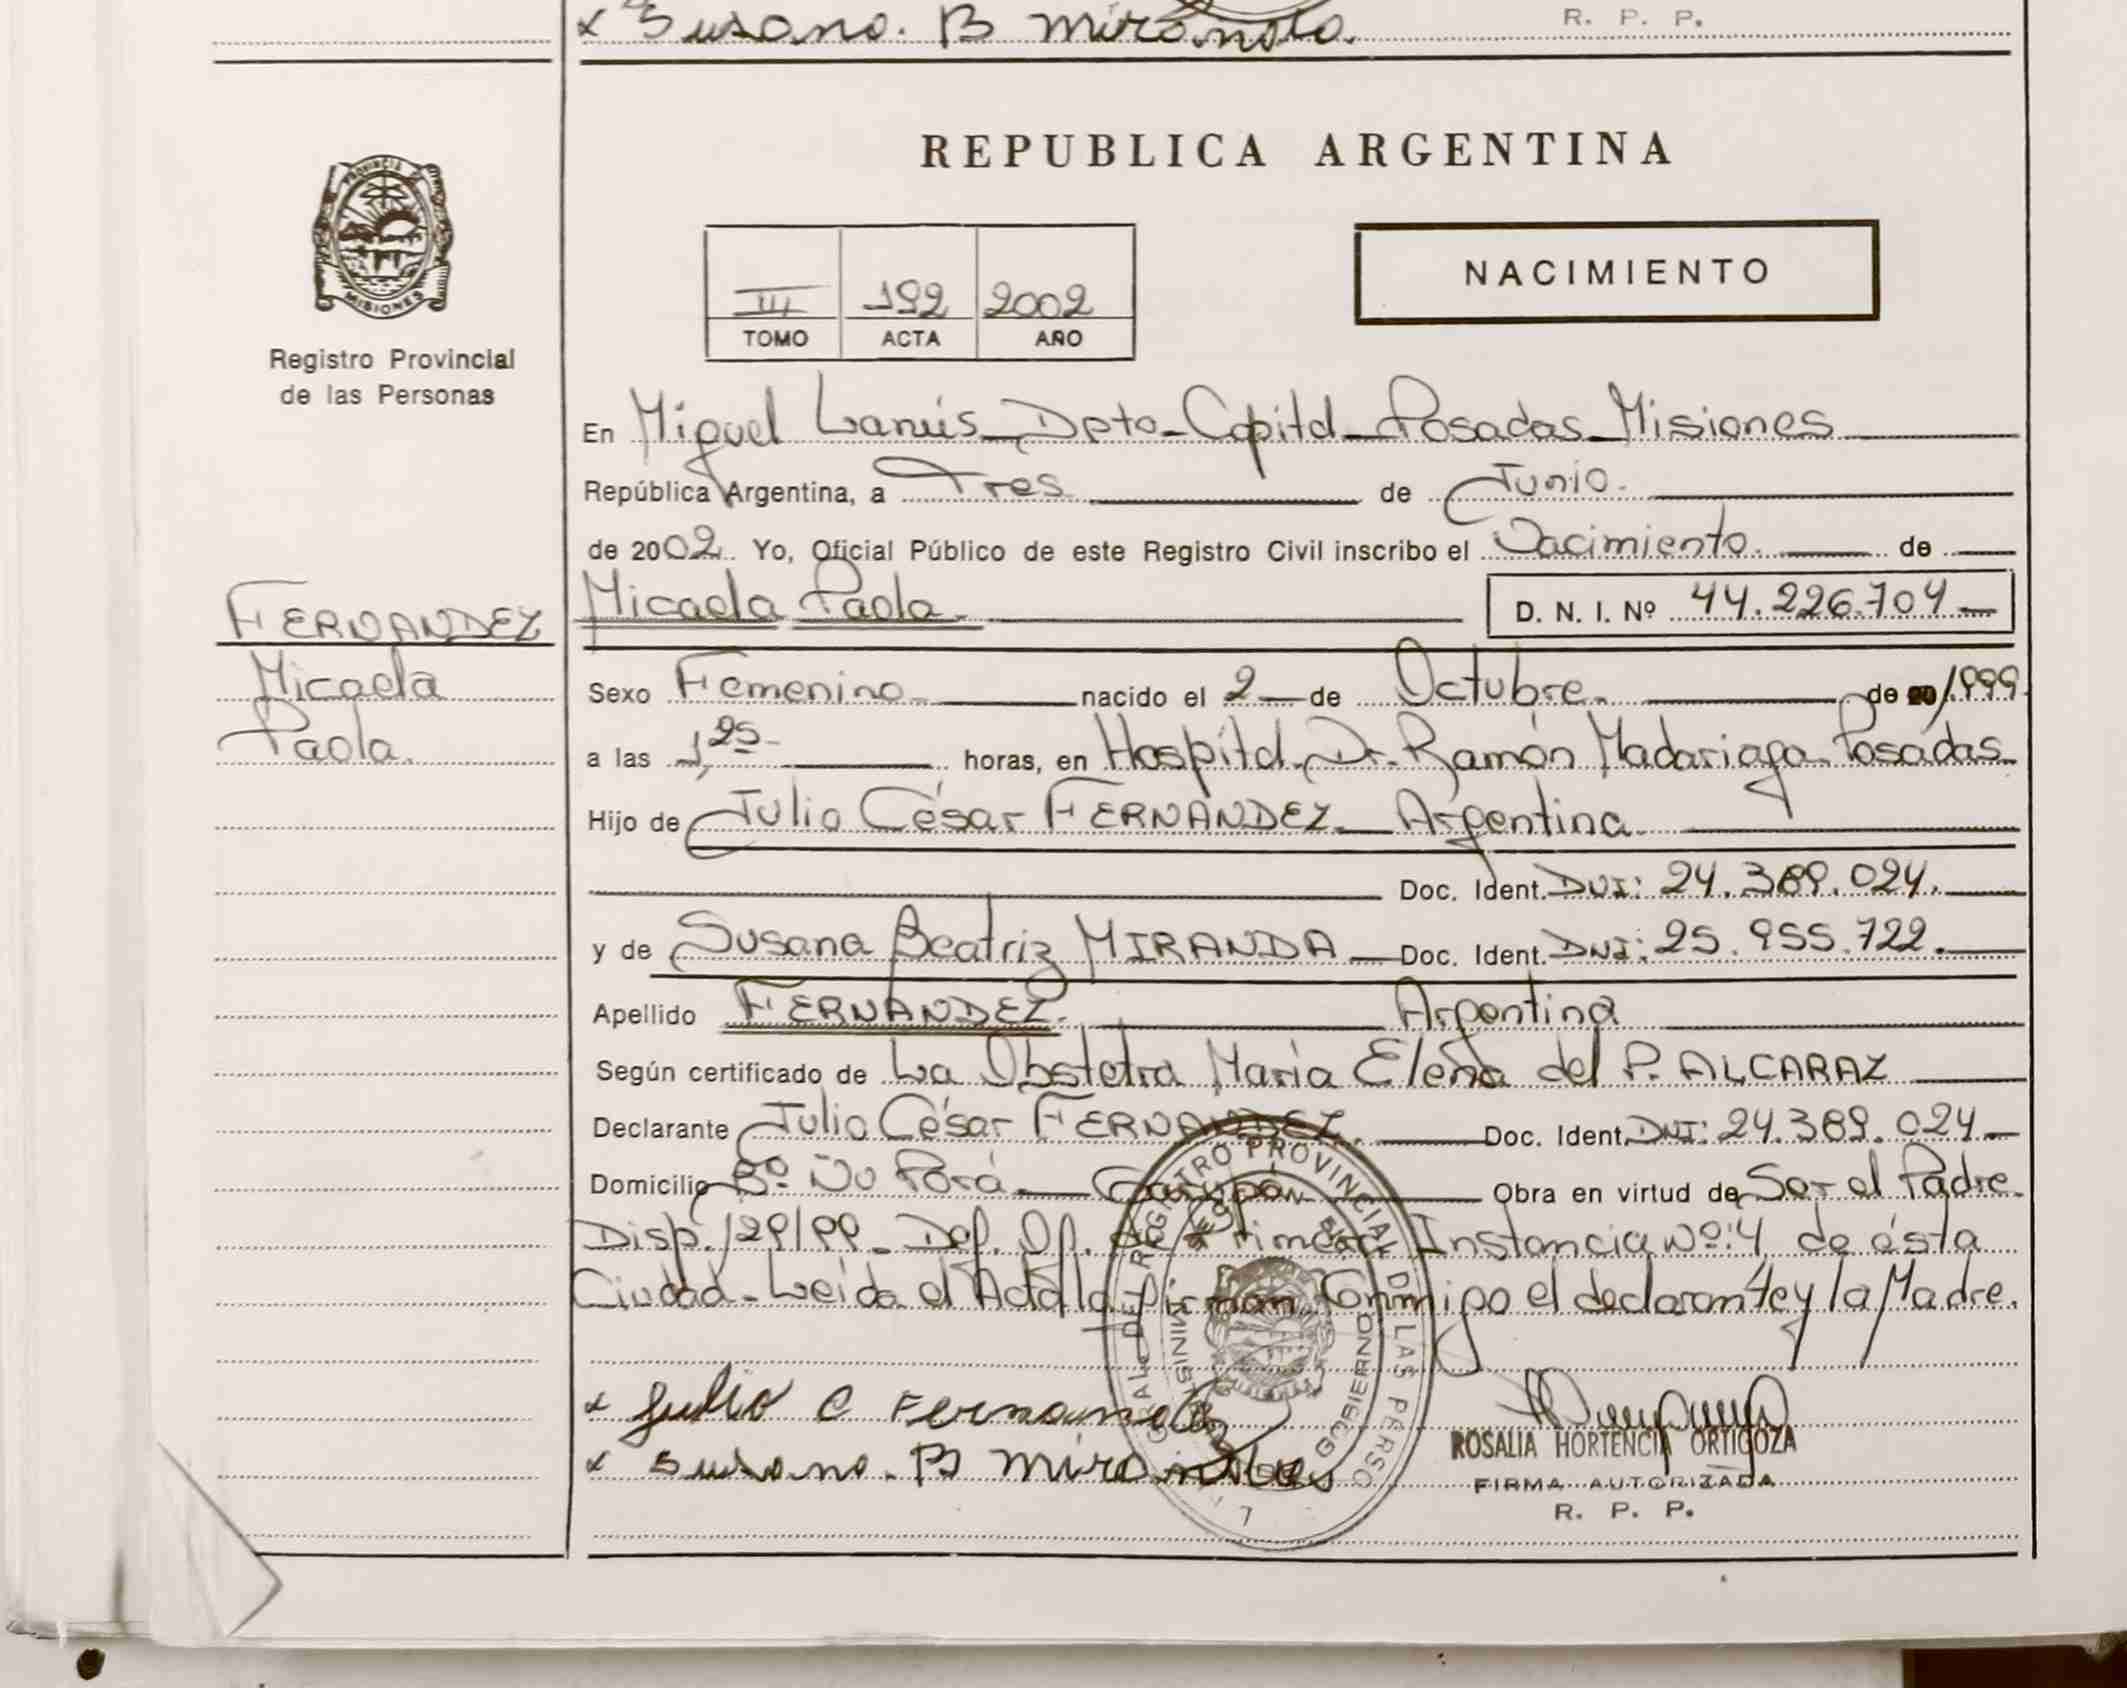 x Susana. B Miranda.
R. P. P.
PROVINCIA DE
MISIONES
Registro Provincial
de las Personas
REPUBLICA ARGENTINA
NACIMIENTO
III 192 2002
TOMO ACTA AÑO
En Miguel Lanús_Dpto_Capital_Posadas_Misiones
República Argentina, a Tres de Junio.
de 2002. Yo, Oficial Público de este Registro Civil inscribo el Nacimiento. de
FERNANDEZ
Micaela
Paola.
Micaela Paola. D. N. I. Nº 44.226.704
Sexo Femenino nacido el 2 de Octubre. de 20/1999
a las 1,25 horas, en Hospital Dr. Ramón Madariaga_Posadas
Hijo de Julio César FERNANDEZ_Argentina
Doc. Ident. DNI: 24.389.024.
y de Susana Beatriz MIRANDA Doc. Ident. DNI: 25.955.722.
Apellido FERNANDEZ. Argentina
Según certificado de La Obstetra María Elena del P. ALCARAZ
Declarante Julio César FERNANDEZ. Doc. Ident. DNI: 24.389.024
Domicilio Bº Ñu Porá_Garupá Obra en virtud de Ser el Padre.
Disp. /29/99_Def. Of. de Primera Instancia Nº:4 de ésta
Ciudad_Leída el Acta la firman Conmigo el declarante y la Madre.
x Julio C Fernandez
x Susana. B Miranda
GRAL. DEL REGISTRO PROVINCIAL DE LAS PERSO
GOBIERNO
7
ROSALIA HORTENCIA ORTIGOZA
FIRMA AUTORIZADA
R. P. P.